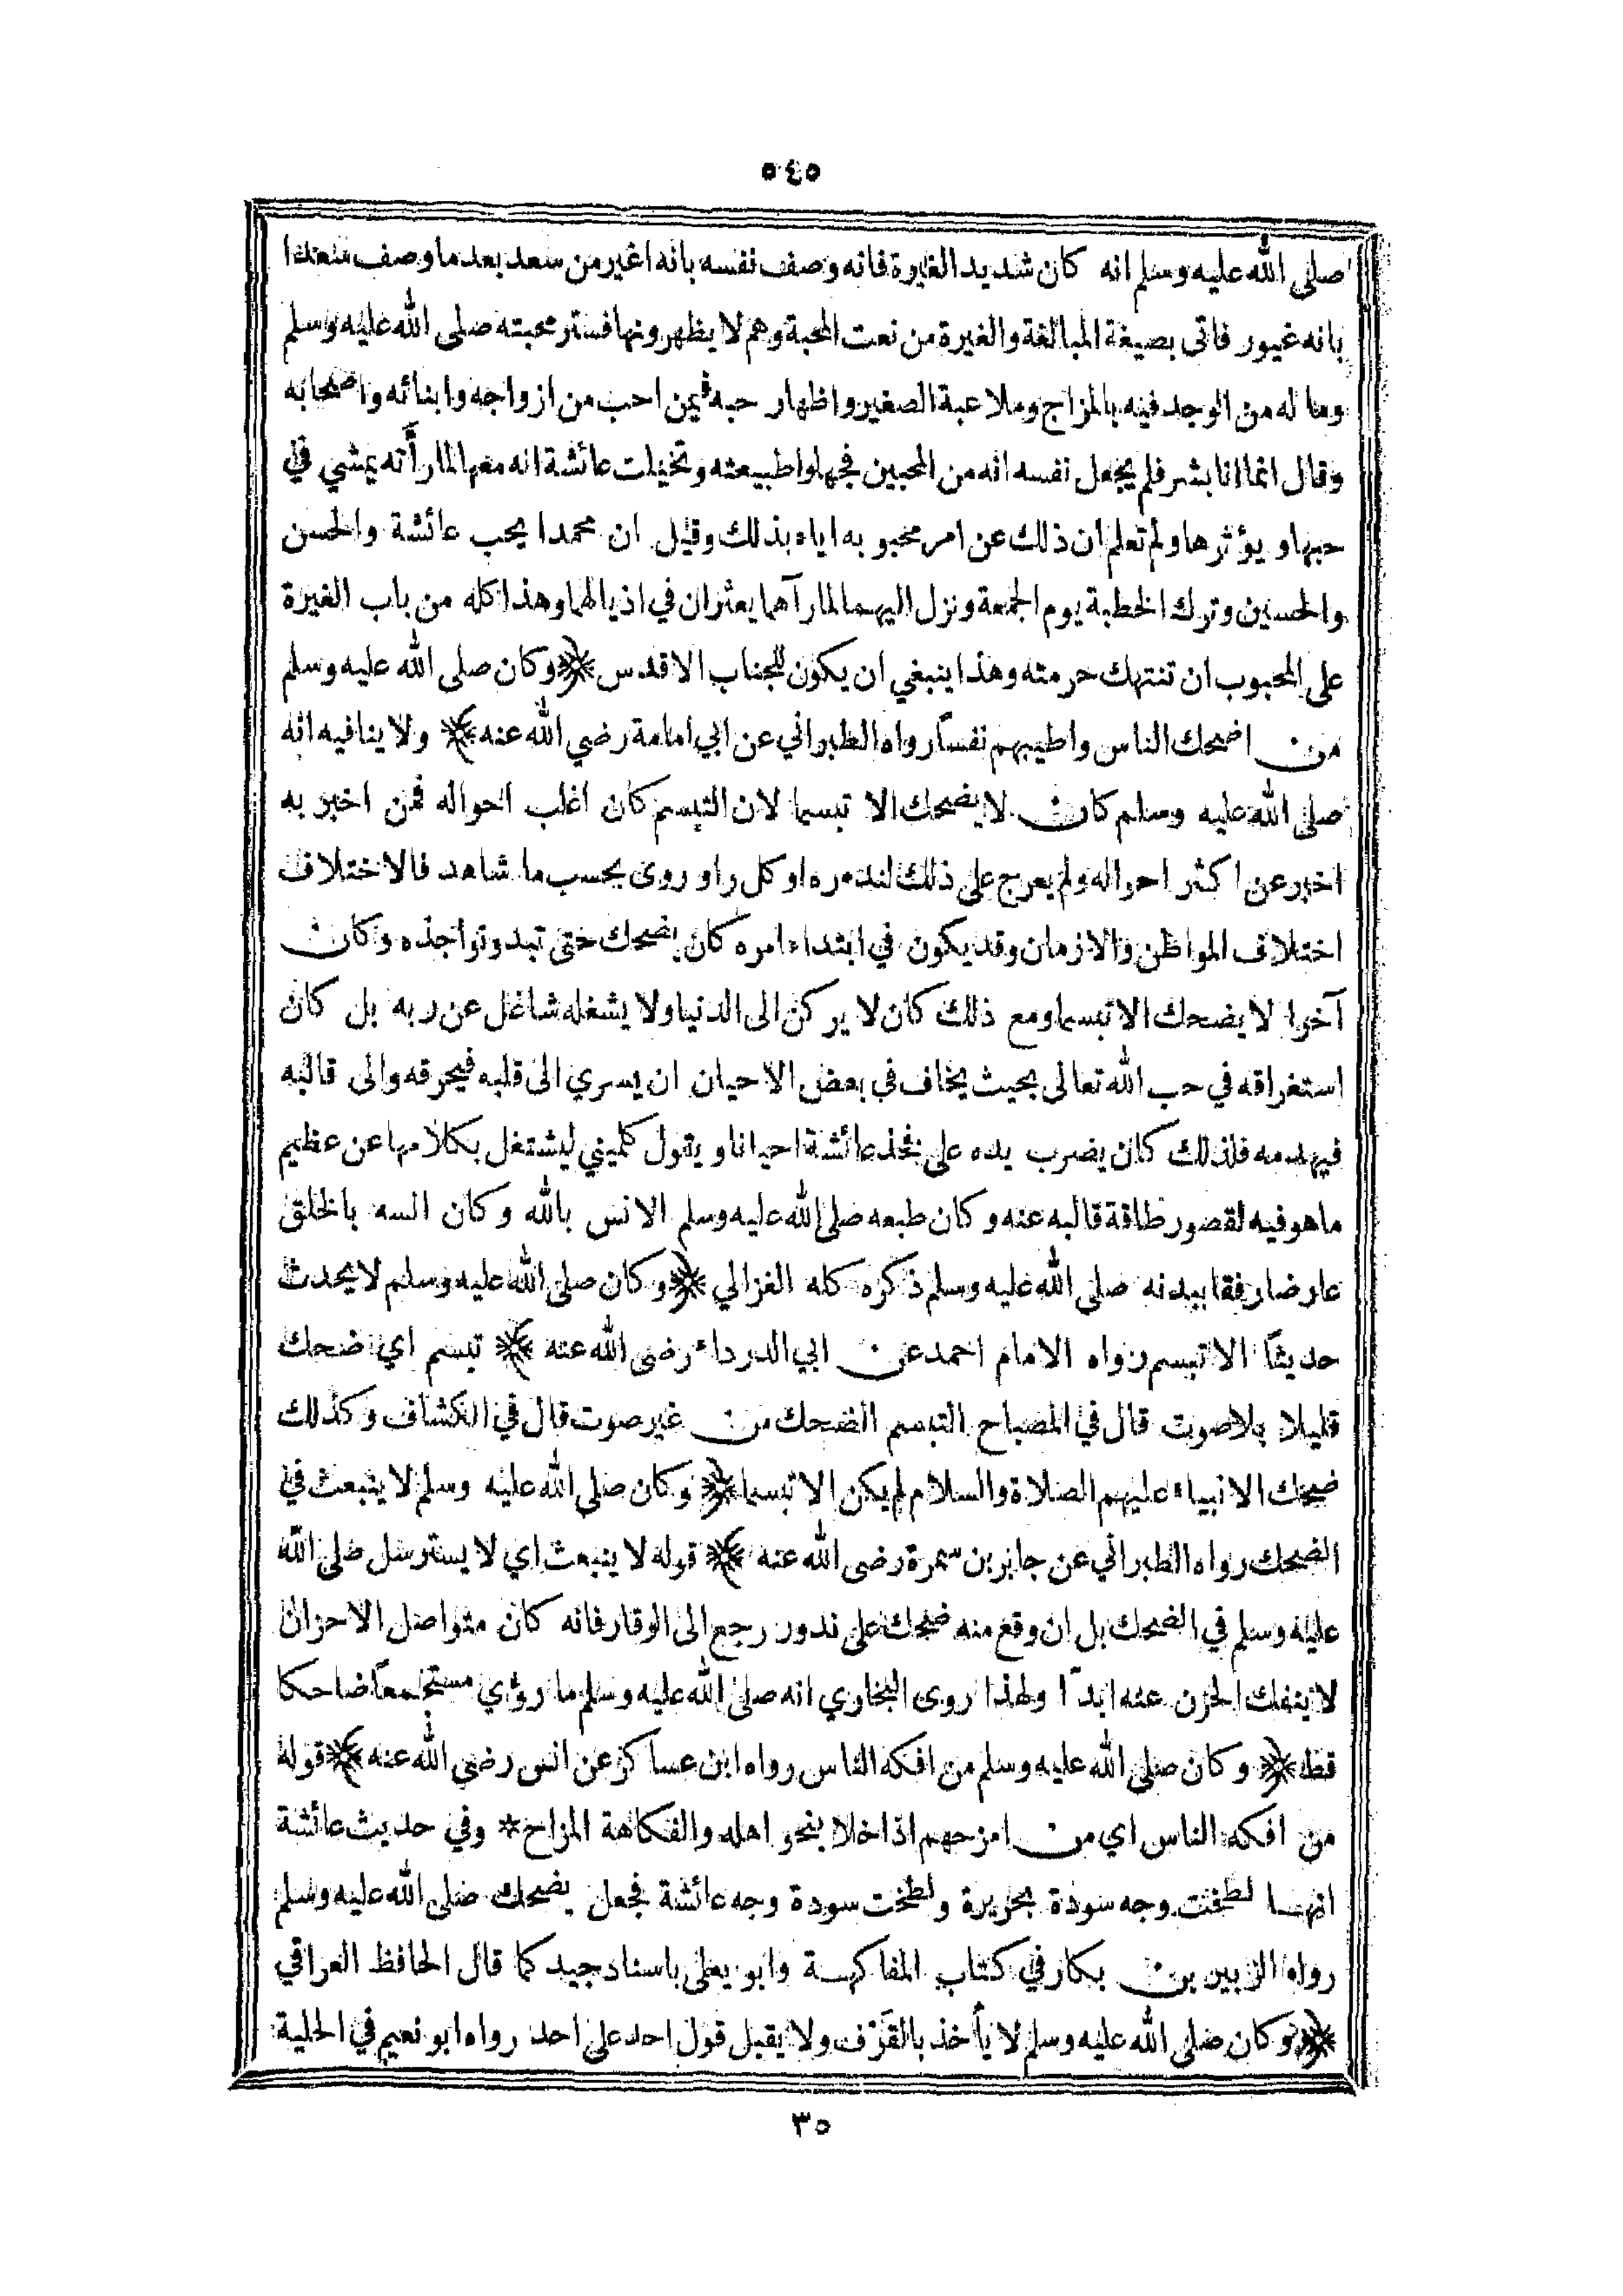 ٥٤٥
صلى الله عليه وسلم انه كان شديد الغيرة فانه وصف نفسه بانه اغير من سعد بعد ما وصف سعدا
بانه غيور فاتى بصيغة المبالغة والغيرة من نعت المحبة وهم لا يظهرونها فستر محبته صلى الله عليه وسلم
وما له من الوجد فيه بالمزاح وملاعبة الصغير واظهار حبه فيمن احب من ازواجه وابنائه واصحابه
وقال انما انا بشر فلم يجعل نفسه انه من المحبين فجهلوا طبيعته وتخيلت عائشة انه معها لما رأته يمشي في
حبها ويؤثرها ولم تعلم ان ذلك عن امر محبوبه اياه بذلك وقيل ان محمدا يحب عائشة والحسن
والحسين وترك الخطبة يوم الجمعة ونزل اليهما لما رآهما يعثران في اذيالهما وهذا كله من باب الغيرة
على المحبوب ان تنتهك حرمته وهذا ينبغي ان يكون للجناب الاقدس ﴿وكان صلى الله عليه وسلم
من اضحك الناس واطيبهم نفساً رواه الطبراني عن ابي امامة رضي الله عنه﴾ ولا ينافيه انه
صلى الله عليه وسلم كان لا يضحك الا تبسما لان التبسم كان اغلب احواله فمن اخبر به
اخبر عن اكثر احواله ولم يعرج على ذلك لندوره او كل راو روى بحسب ما شاهد فالاختلاف
اختلاف المواطن والازمان وقد يكون في ابتداء امره كان يضحك حتى تبدو نواجذه وكان
آخرا لا يضحك الا تبسما ومع ذلك كان لا يركن الى الدنيا ولا يشغله شاغل عن ربه بل كان
استغراقه في حب الله تعالى بحيث يخاف في بعض الاحيان ان يسري الى قلبه فيحرقه والى قالبه
فيهدمه فلذلك كان يضرب يده على فخذ عائشة احيانا ويقول كلميني ليشتغل بكلامها عن عظيم
ما هو فيه لقصور طاقة قالبه عنه وكان طبعه صلى الله عليه وسلم الانس بالله وكان انسه بالخلق
عارضا رفقا ببدنه صلى الله عليه وسلم ذكره كله الغزالي ﴿وكان صلى الله عليه وسلم لا يحدث
حديثاً الا تبسم رواه الامام احمد عن ابي الدرداء رضى الله عنه﴾ تبسم اي ضحك
قليلا بلا صوت قال في المصباح التبسم الضحك من غير صوت قال في الكشاف وكذلك
ضحك الانبياء عليهم الصلاة والسلام لم يكن الا تبسما ﴿وكان صلى الله عليه وسلم لا ينبعث في
الضحك رواه الطبراني عن جابر بن سمرة رضى الله عنه﴾ قوله لا ينبعث اي لا يسترسل صلى الله
عليه وسلم في الضحك بل ان وقع منه ضحك على ندور رجع الى الوقار فانه كان متواصل الاحزان
لا ينفك الحزن عنه ابدآ ولهذا روى البخاري انه صلى الله عليه وسلم ما رؤي مستجمعاً ضاحكا
قط ﴿وكان صلى الله عليه وسلم من افكه الناس رواه ابن عساكر عن انس رضي الله عنه﴾ قوله
من افكه الناس اي من امزحهم اذا خلا بنحو اهله والفكاهة المزاح* وفي حديث عائشة
انها لطخت وجه سودة بحريرة ولطخت سودة وجه عائشة فجعل يضحك صلى الله عليه وسلم
رواه الزبير بن بكار في كتاب المفاكهة وابو يعلى باسناد جيد كما قال الحافظ العراقي
﴿وكان صلى الله عليه وسلم لا يأخذ بالقرف ولا يقبل قول احد على احد رواه ابو نعيم في الحلية
٣٥